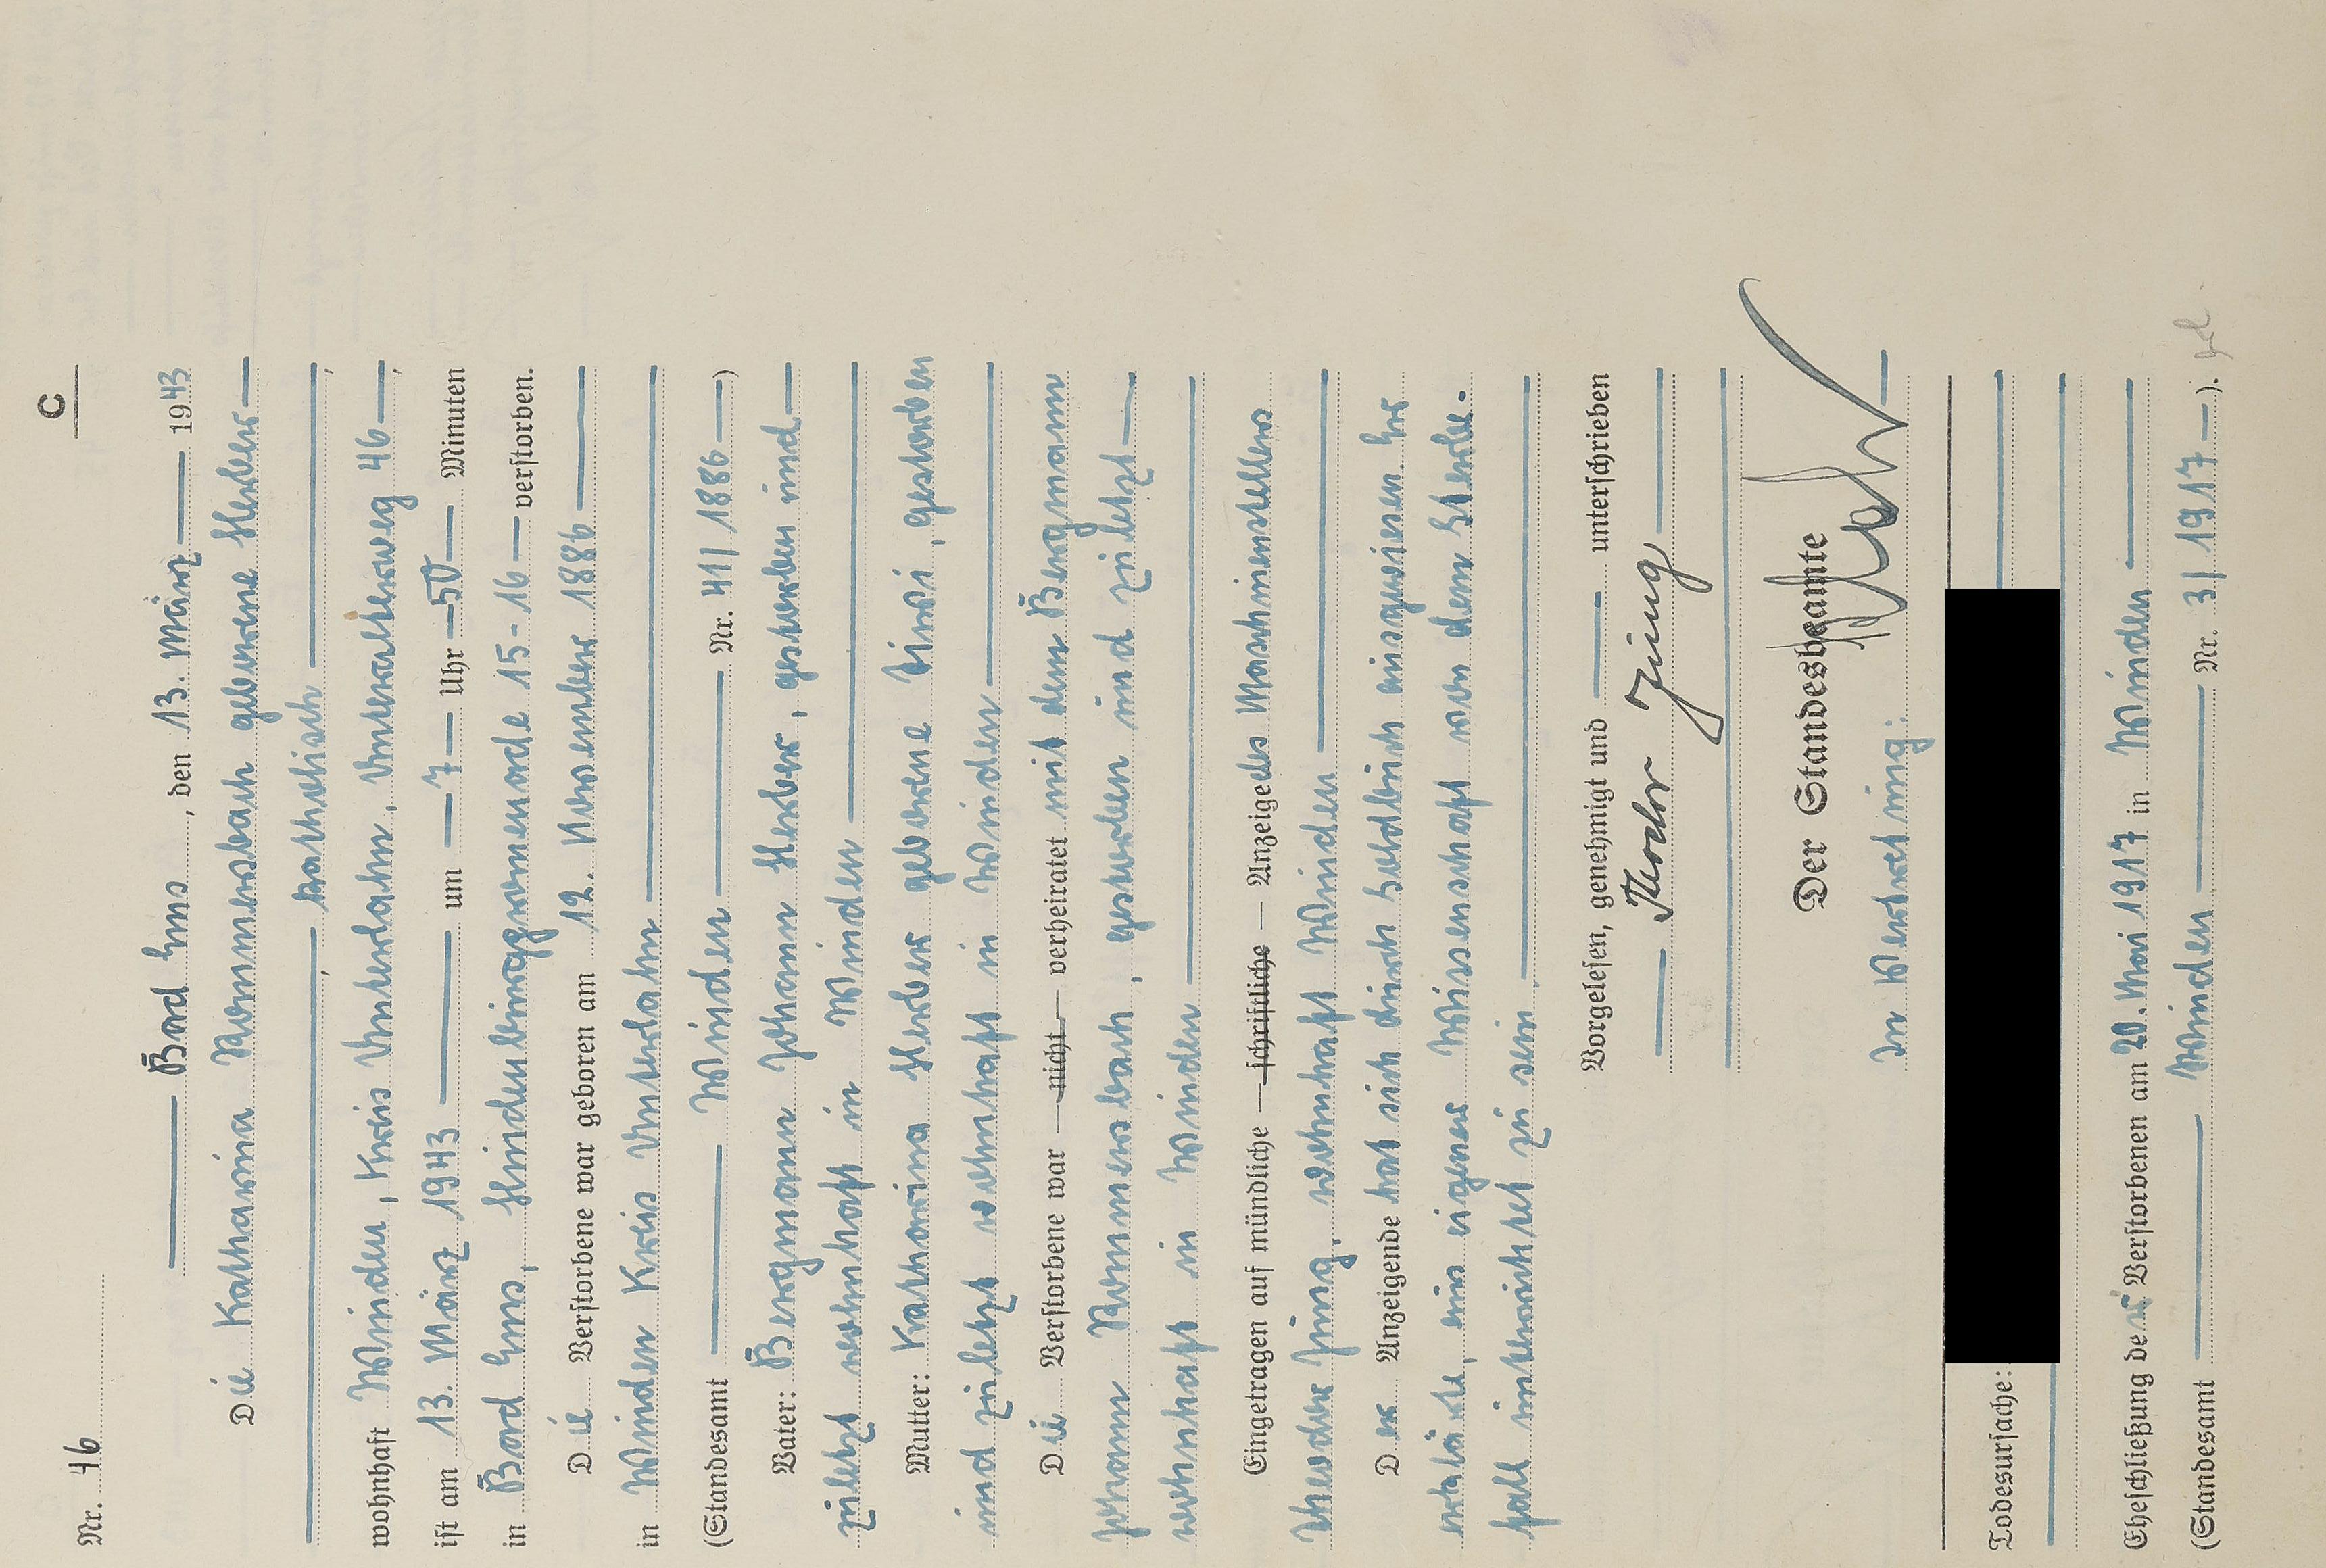 C
Nr. 46
Bad Ems, den 13. März 1943
Die Katharina Nommersbach geborene Herber
katholisch,
wohnhaft Winden, Kreis Unterlahn, Unteralterweg 46,
ist am 13. März 1943 um 7 Uhr 50 Minuten
in Bad Ems, Hindenburgpromenade 15-16 verstorben.
Die Verstorbene war geboren am 12. November 1886
in Winden Kreis Unterlahn
(Standesamt Winden Nr. 41/1886)
Vater: Bergmann Johann Herber, gestorben und
zuletzt wohnhaft in Winden
Mutter: Katharina Herber geborene Lindi, gestorben
und zuletzt wohnhaft in Winden
Die Verstorbene war nicht verheiratet mit dem Bergmann
Johann Nommersbach, gestorben und zuletzt
wohnhaft in Winden
Eingetragen auf mündliche — schriftliche — Anzeige des Maschinenstellers
Theodor Jung, wohnhaft Winden
Der Anzeigende hat sich durch Soldbuch ausgewiesen. Er
erklärte, aus eigener Wissenschaft von dem Sterbe-
fall unterrichtet zu sein.
Vorgelesen, genehmigt und unterschrieben
Theodor Jung
Der Standesbeamte
In Vertretung:
Todesursache:
Eheschließung der Verstorbenen am 20. Mai 1917 in Winden
(Standesamt Winden Nr. 3/1917).